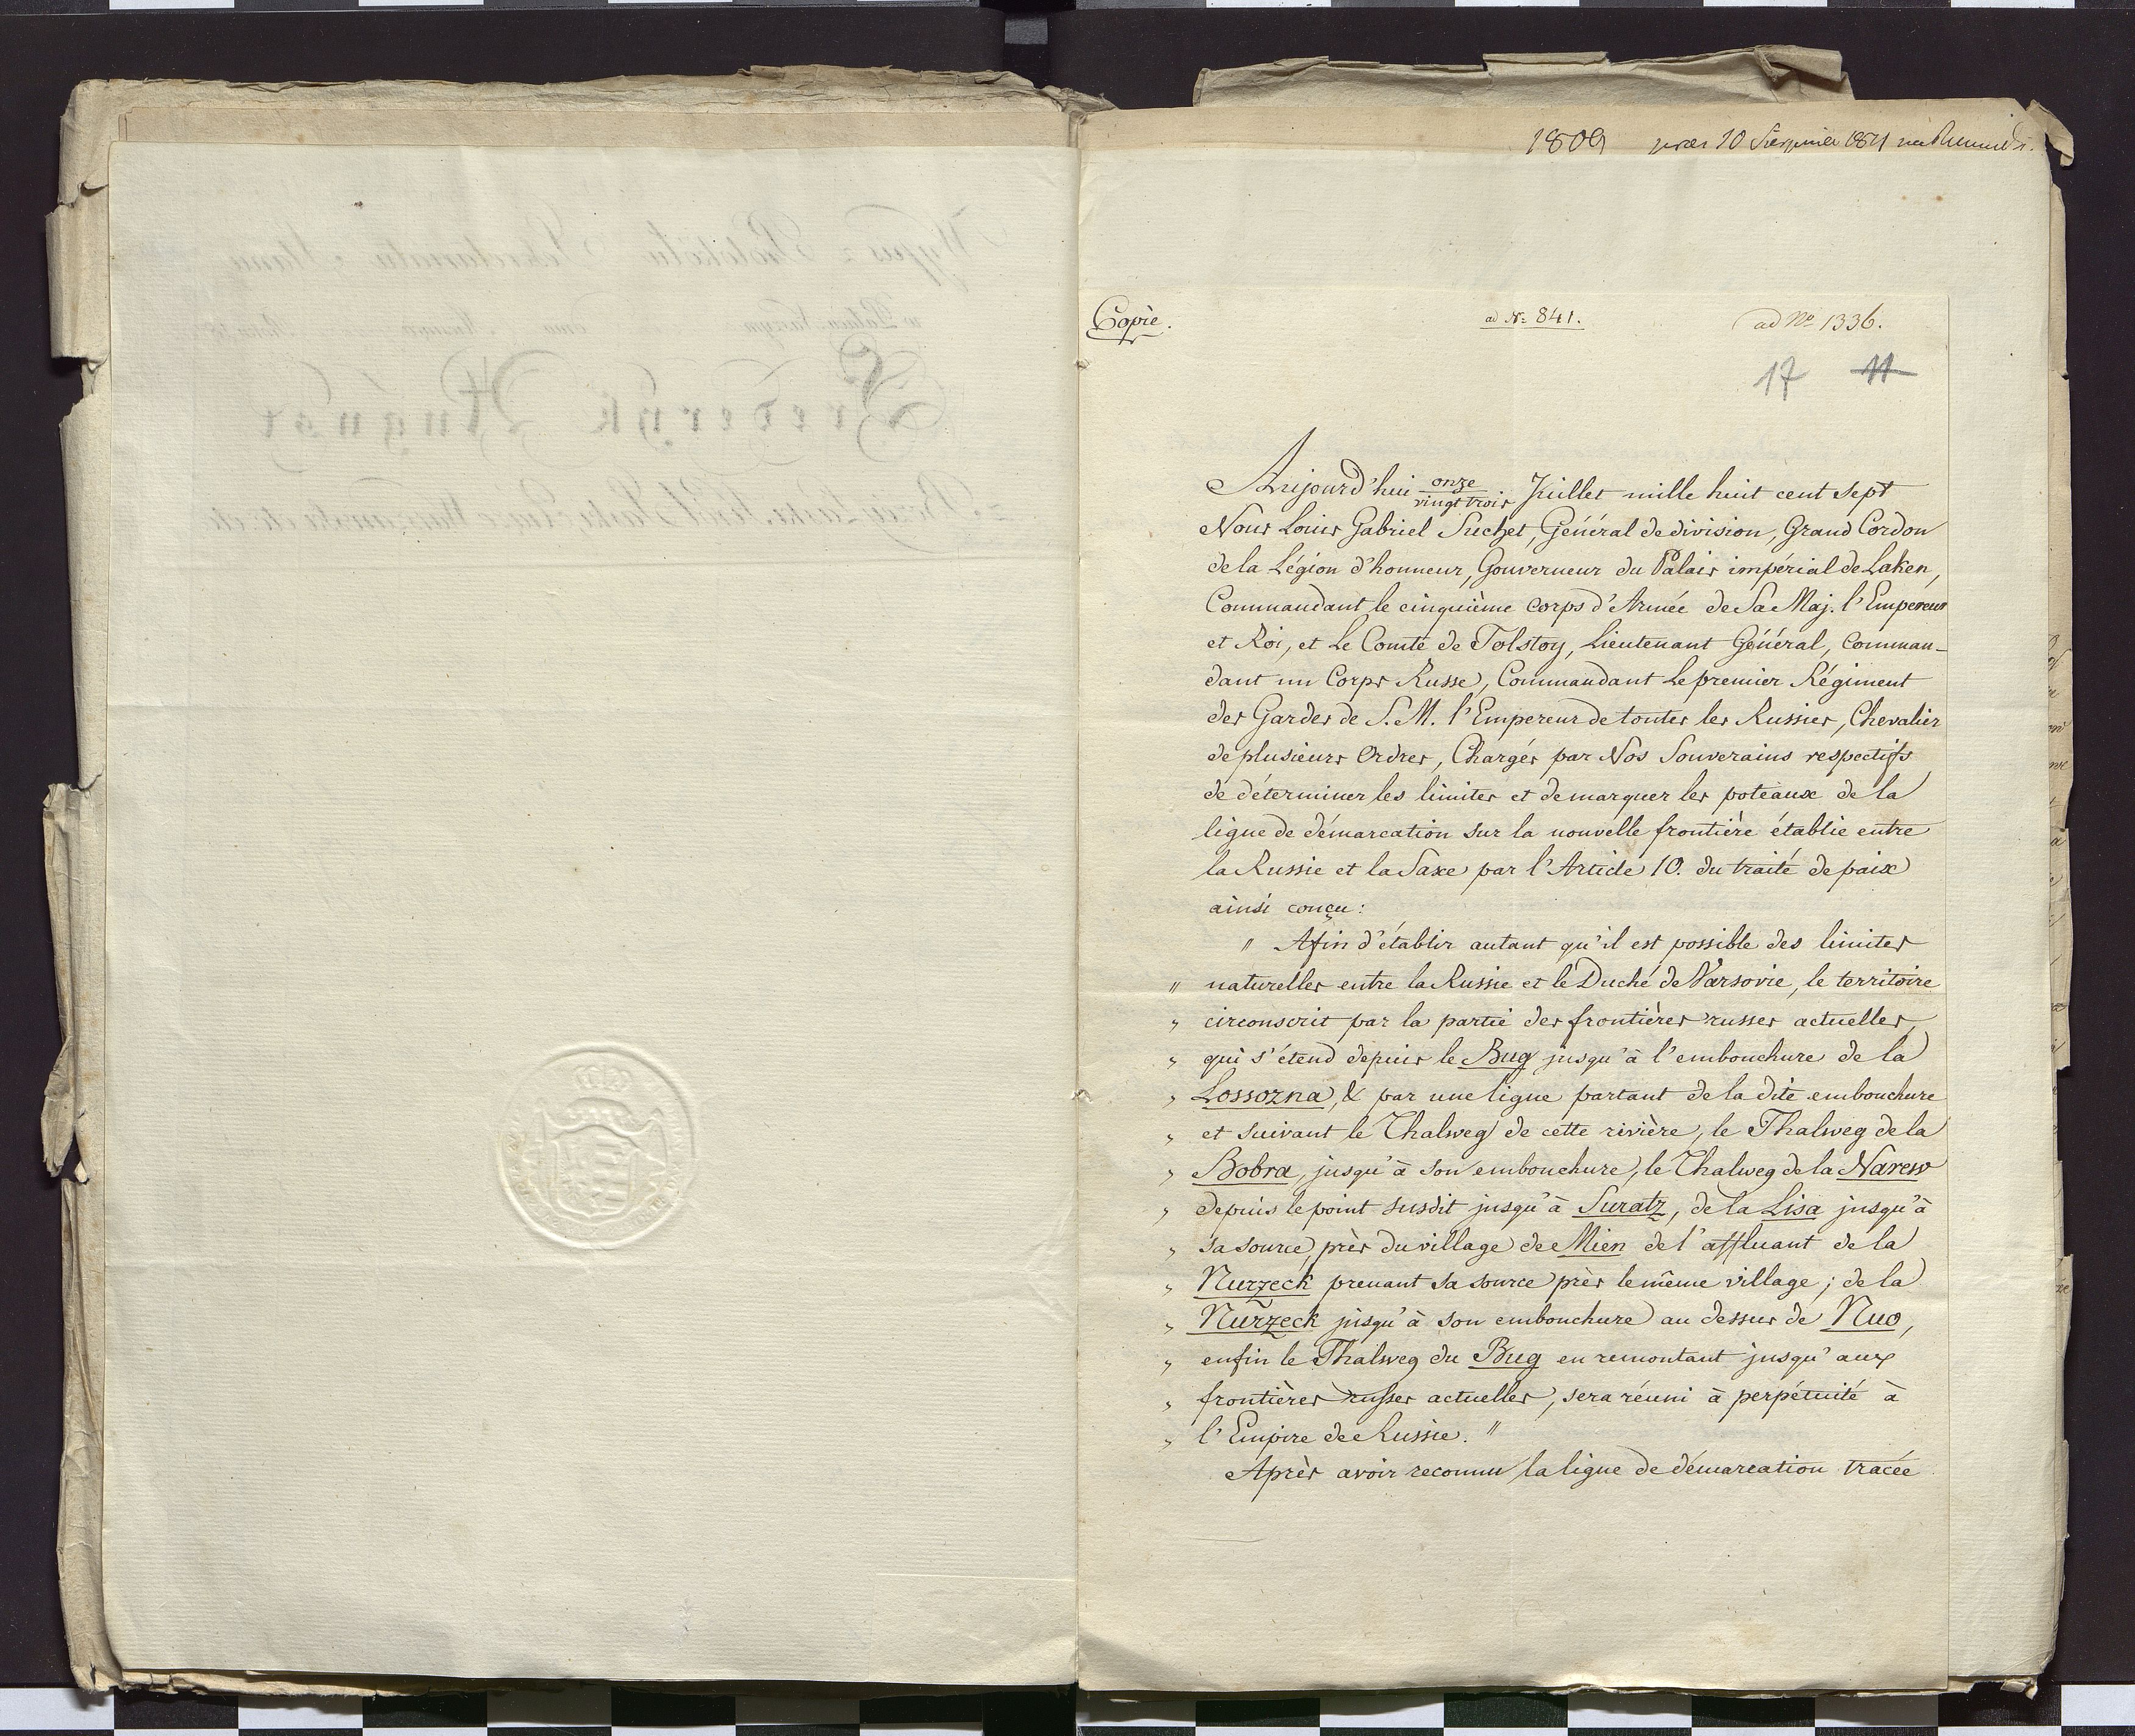 1809
Copie.
ad N: 841.
ad No 1336.
17 11
Aujourd'hui onze/vingt trois Juillet mille huit cent sept
Nous Louis Gabriel Suchet, Général de division, Grand Cordon
de la Légion d'honneur, Gouverneur du Palais impérial de Laken,
Commandant le cinquième corps d'Armée de Sa Maj. l'Empereur
et Roi, et Le Comte de Tolstoy, Lieutenant Général, Comman-
dant un Corps Russe, Commandant le premier Régiment
des Gardes de S. M. l'Empereur de toutes les Russies, Chevalier
de plusieurs Ordres, Chargés par Nos Souverains respectifs
de déterminer les limites et de marquer les poteaux de la
ligne de démarcation sur la nouvelle frontière établie entre
la Russie et la Saxe par l'Article 10. du traité de paix
ainsi conçu:
" Afin d'établir autant qu'il est possible des limites
" naturelles entre la Russie et le Duché de Varsovie, le territoire
" circonscrit par la partie des frontières russes actuelles,
" qui s'étend depuis le Bug jusqu'à l'embouchure de la
" Lossozna, & par une ligne partant de la dite embouchure
" et suivant le Thalweg de cette rivière, le Thalweg de la
" Bobra, jusqu'à son embouchure, le Thalweg de la Narew
" depuis le point susdit jusqu'à Suratz, de la Lisa jusqu'à
" sa source, près du village de Mien de l'affluant de la
" Nurzeck prenant sa source près le même village; de la
" Nurzeck jusqu'à son embouchure au dessus de Nuo,
" enfin le Thalweg du Bug en remontant jusqu'aux
" frontières russes actuelles, sera réuni à perpétuité à
" l'Empire de Russie. "
Après avoir reconnu la ligne de démarcation tracée